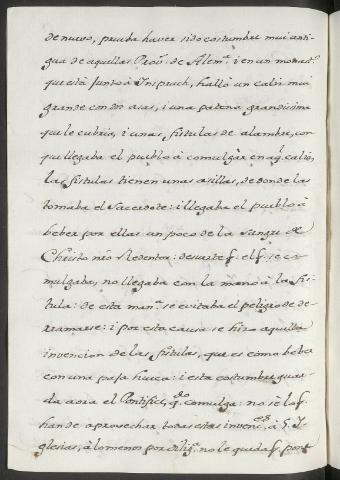 de nuevo, prueba haver sido costumbre mui anti-
gua de aquellas Prov.s de Alem.a i en un monast.o
que está junto à Inspruch, hallò un caliz mui
grande con dos asas, i una patena grandissima
que le cubria, i unas fistulas de alambre, con
que llegaba el pueblo à comulgàr en aq.l caliz,
las fistulas tienen unas asillas, de donde las
tomaba el Sacerdote: i llegaba el pueblo à
beber por ellas un poco de la Sangre de
Christo nr̃o Redentor: de suerte q. el q. se co-
mulgaba, no llegaba con la mano à la fis-
tula: de esta man.a se evitaba el peligro de de-
rramarse: i por esta causa se hizo aquella
invencion de las fistulas, que es como beber
con una paja hueca: i esta costumbre guar-
da aora el Pontifice, q.do comulga: no sè lo q.
han de aprovechar todas estas invenc.es à S. I-
glesias, à lo menos por dilig.a no le queda q. pont